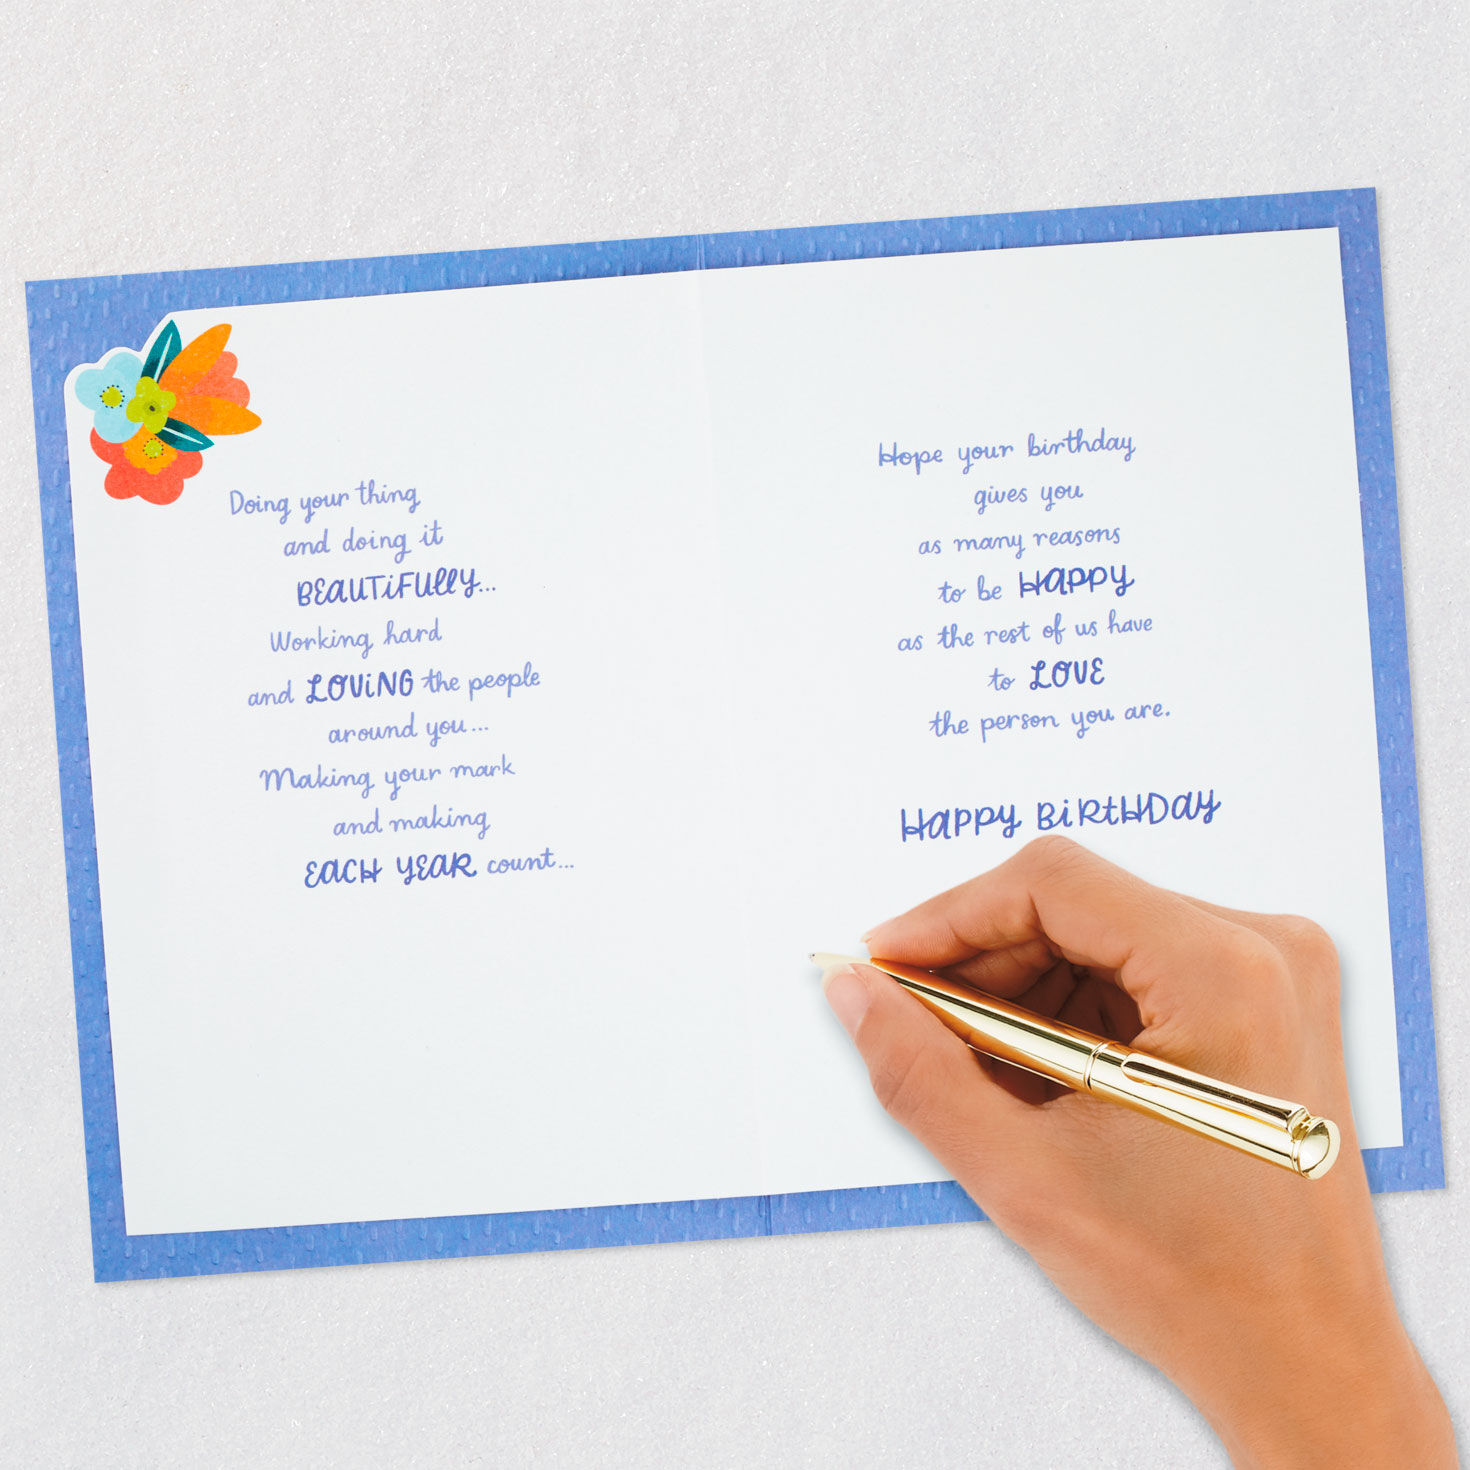 Doing your thing
and doing it
BEAUTiFUlly...
Working hard
and LOViNG the people
around you...
Making your mark
and making
EACH YEAR count...
Hope your birthday
gives you
as many reasons
to be HAPPY
as the rest of us have
to LOVE
the person you are.
HAPPY BiRtHDAY